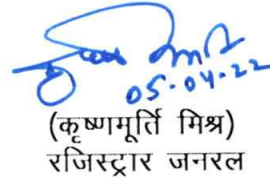 05.04.22
(कृष्णमूर्ति मिश्र)
रजिस्ट्रार जनरल